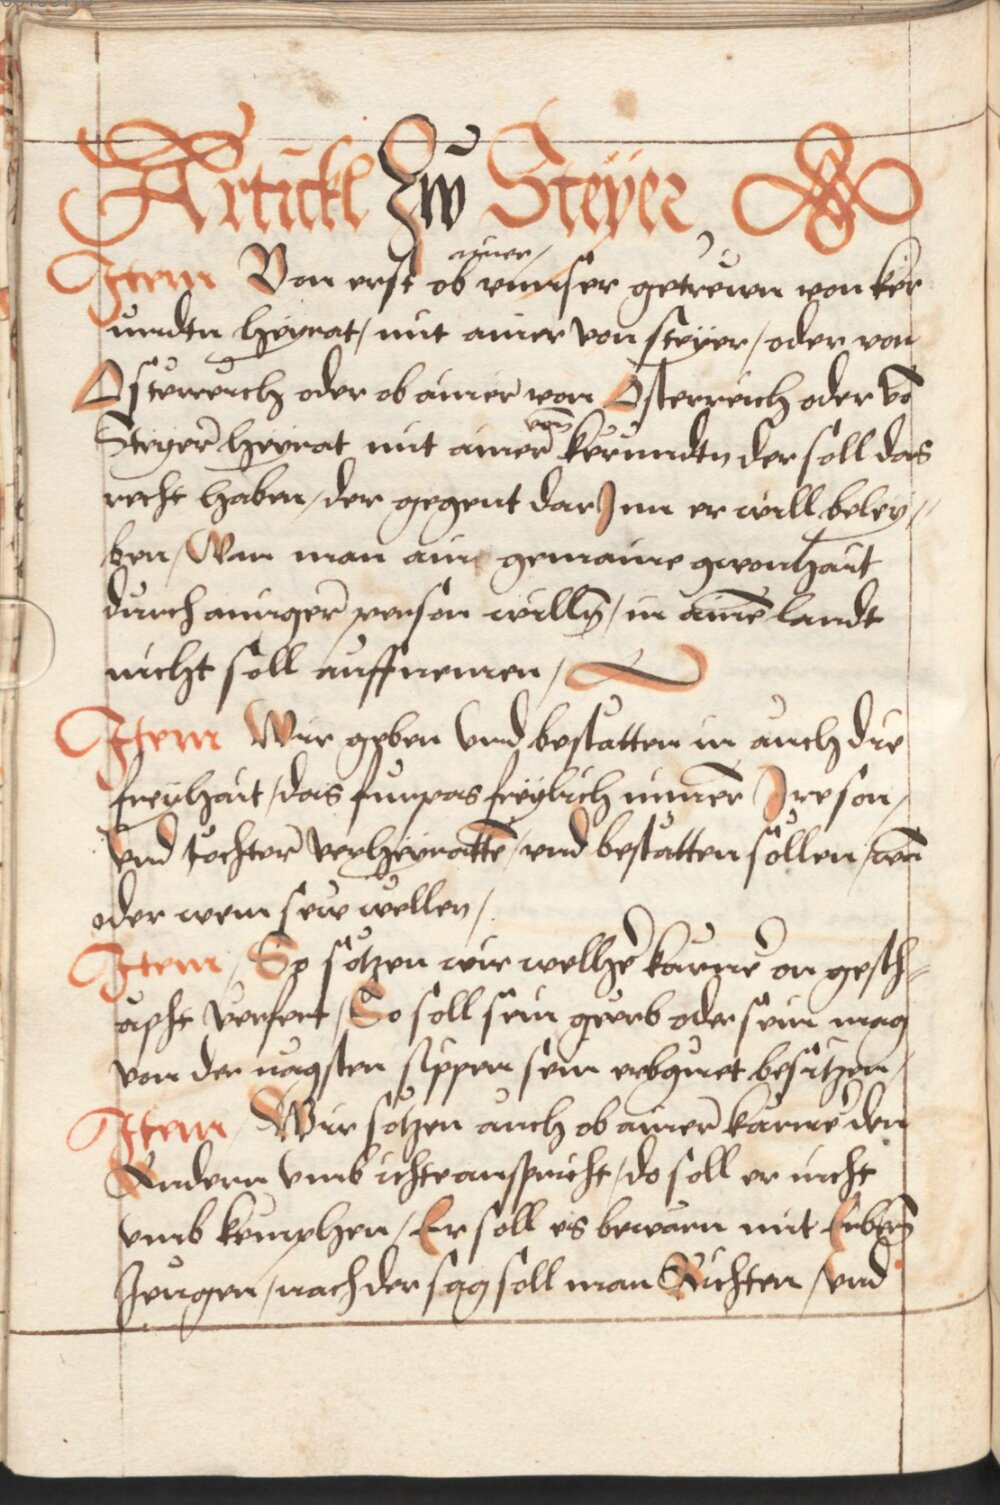 Artickl Zw Steyer
Item Von erst ob ainer vnnser getrewn von ker
nndtn heyrat / mit ainer von steyer / oder von
Osterreich oder ob ainer von Osterreich oder vō
Steyer heyrat mit ainer von kernndtn der soll das
recht haben / der gegent dar Inn er will beley //
ben / Wan man ain gemaine gwonhait
durch ainiger person willn̄ / in aīne landt
nicht soll auffnemen /
Item Wir geben vnd bestatten in auch die
freyhait / das furpas freylich nimer Ire son /
vnd tochter verheyrattē / vnd bestatten sollen / wen
oder wem sew wellen /
Item / So setzen wir welher karner on gesch=
epft verfert / So soll sein gerb oder sein mag
von der nagsten sippen sein erbguet besitzen /
Item / Wir setzen auch ob ainer karner den
Andern vmb ichte anspricht / do soll er nicht
vmb kemphen / Er soll es bewarn mit Erbern̄
Zeugen / nach der sag soll man Richten / vnd